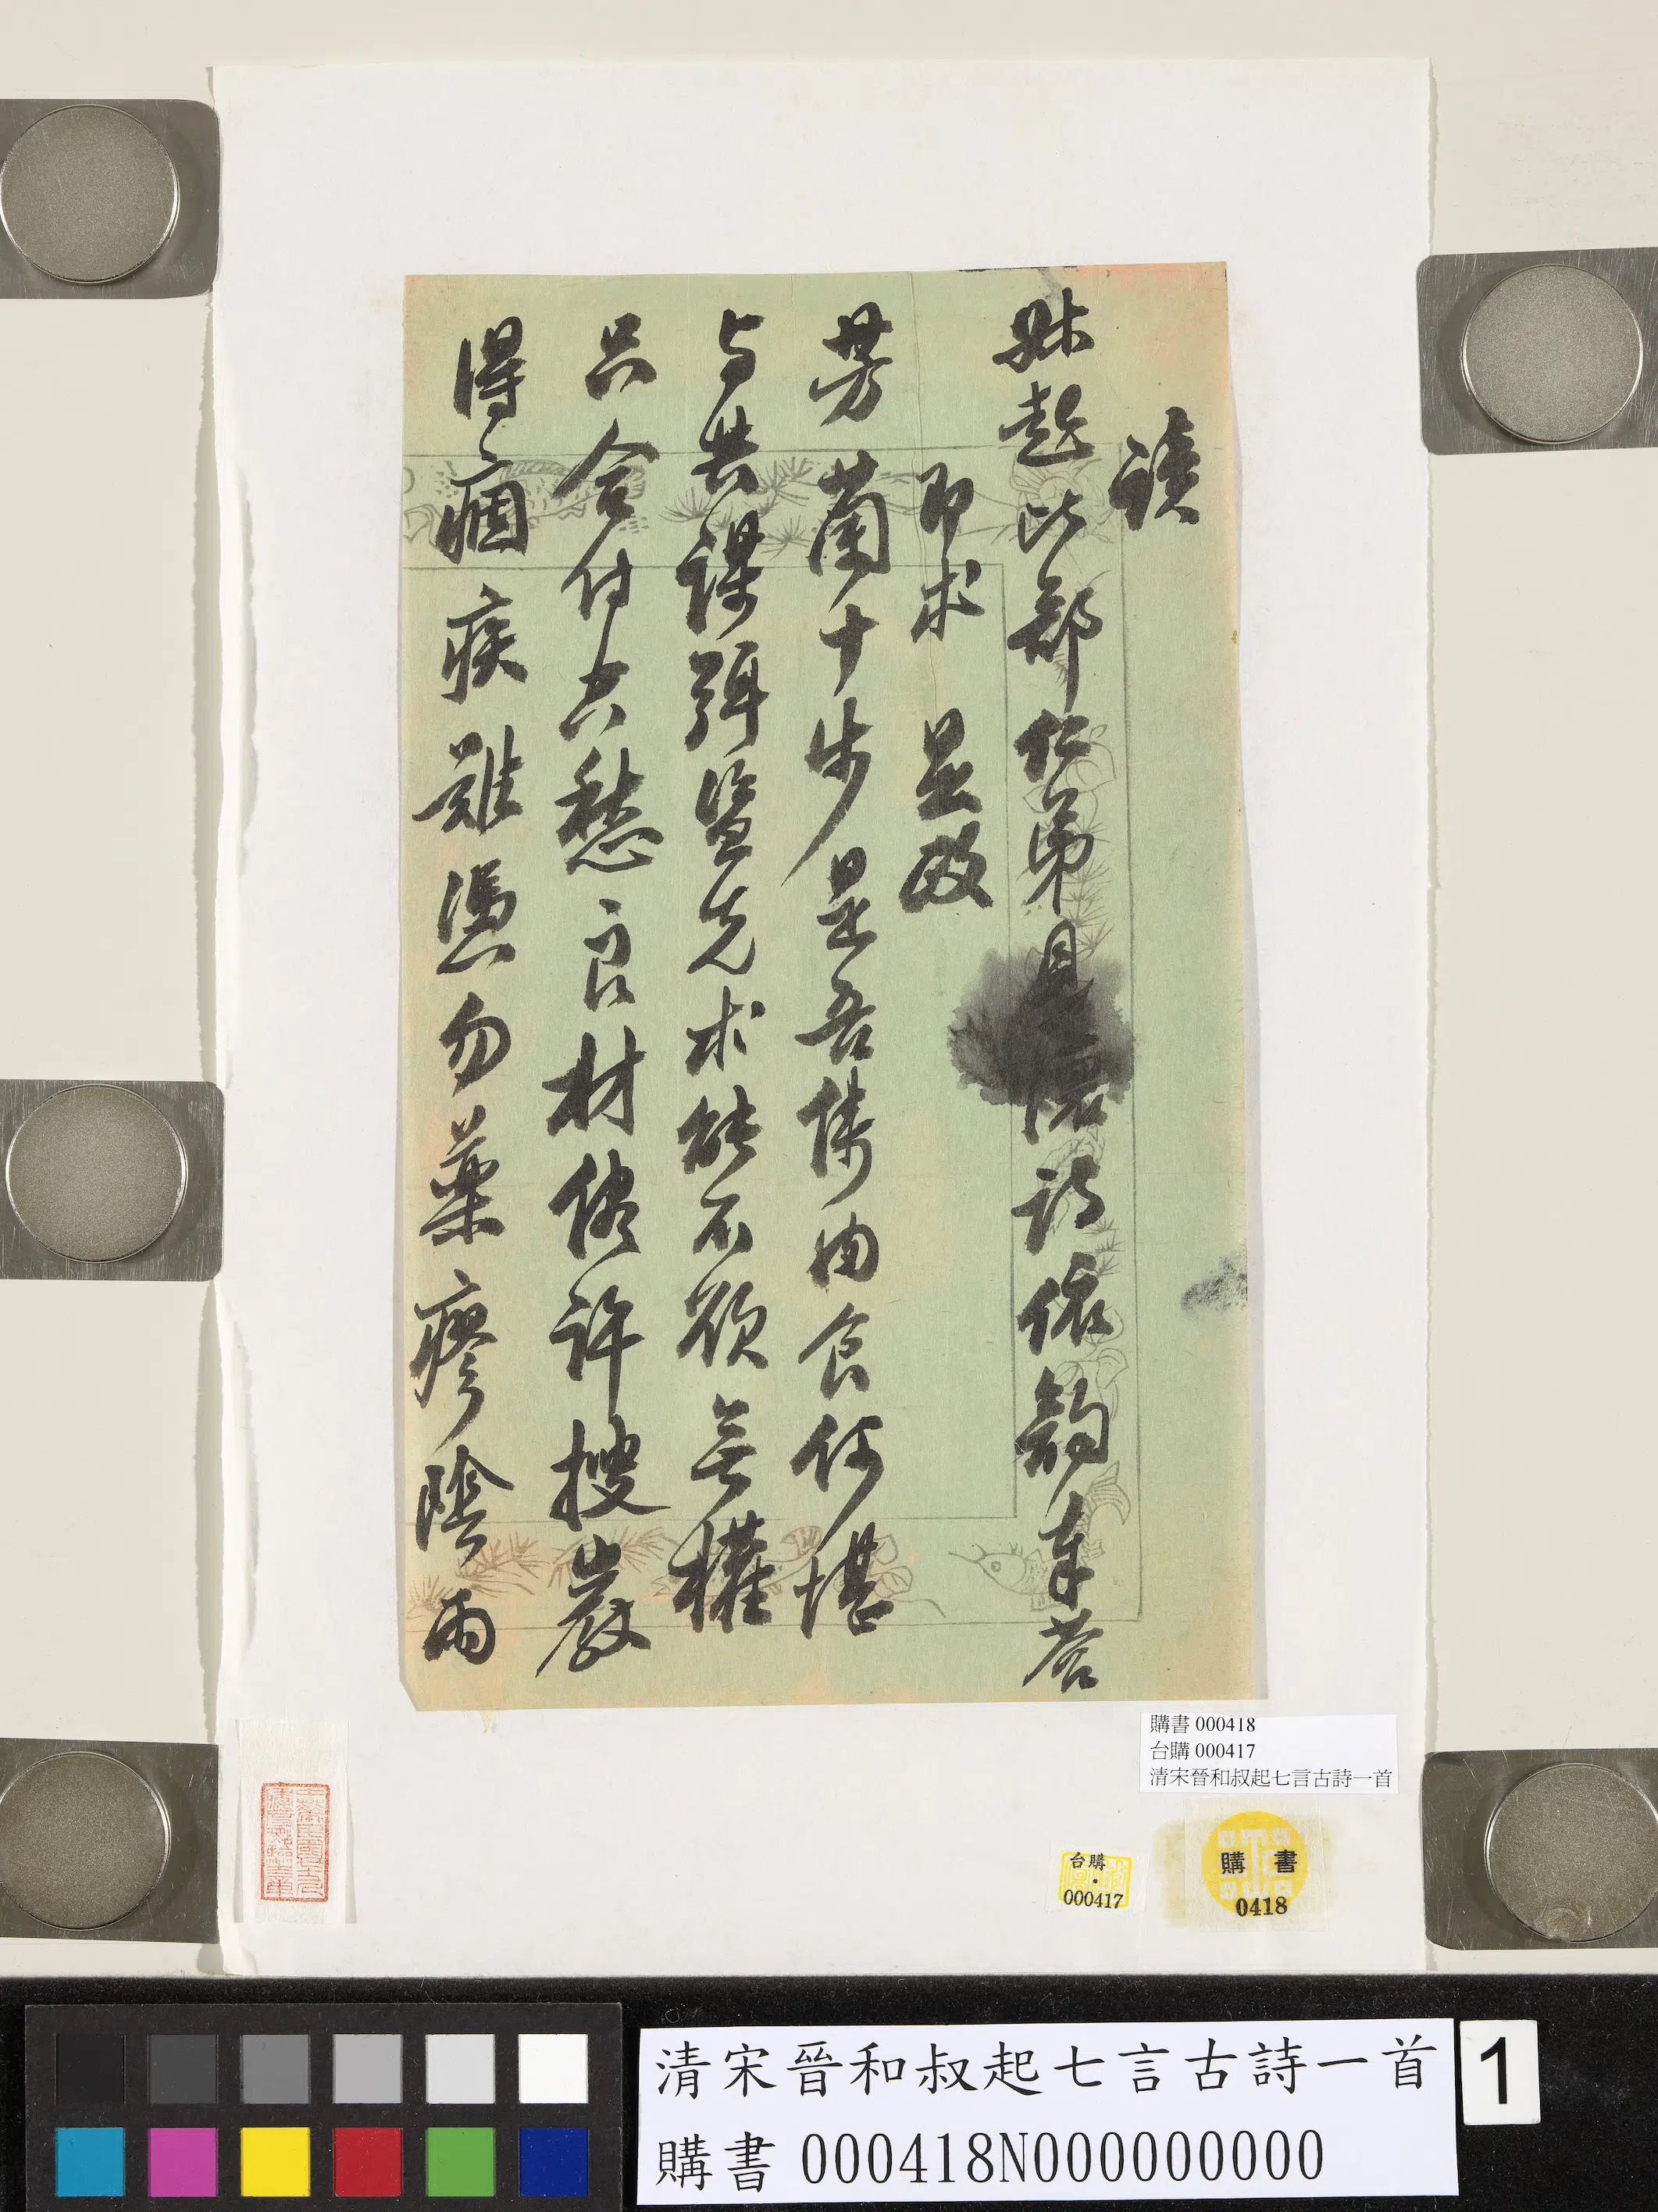 讀
叔起比部仁弟見懷詩依韵奉答
即求　是政
芳蘭十步是吾儔肉食何堪
与共謀弭盜先求能不欲無權
只合付六愁良材儘許搜巖
得痼疾難憑勿藥瘳陰雨
購書 000418
台購 000417
清宋晉和叔起七言古詩一首
台購
000417
購 書
0418
清宋晉和叔起七言古詩一首
購書 000418N000000000
1